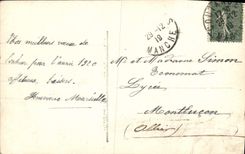 Nos meilleurs vœux de
bonheur pour l'année 1920
affectueux baisers
29-12
19
MANCHE
Mr et Madame Simon
Economat
Lycée
Montluçon
(Allier)